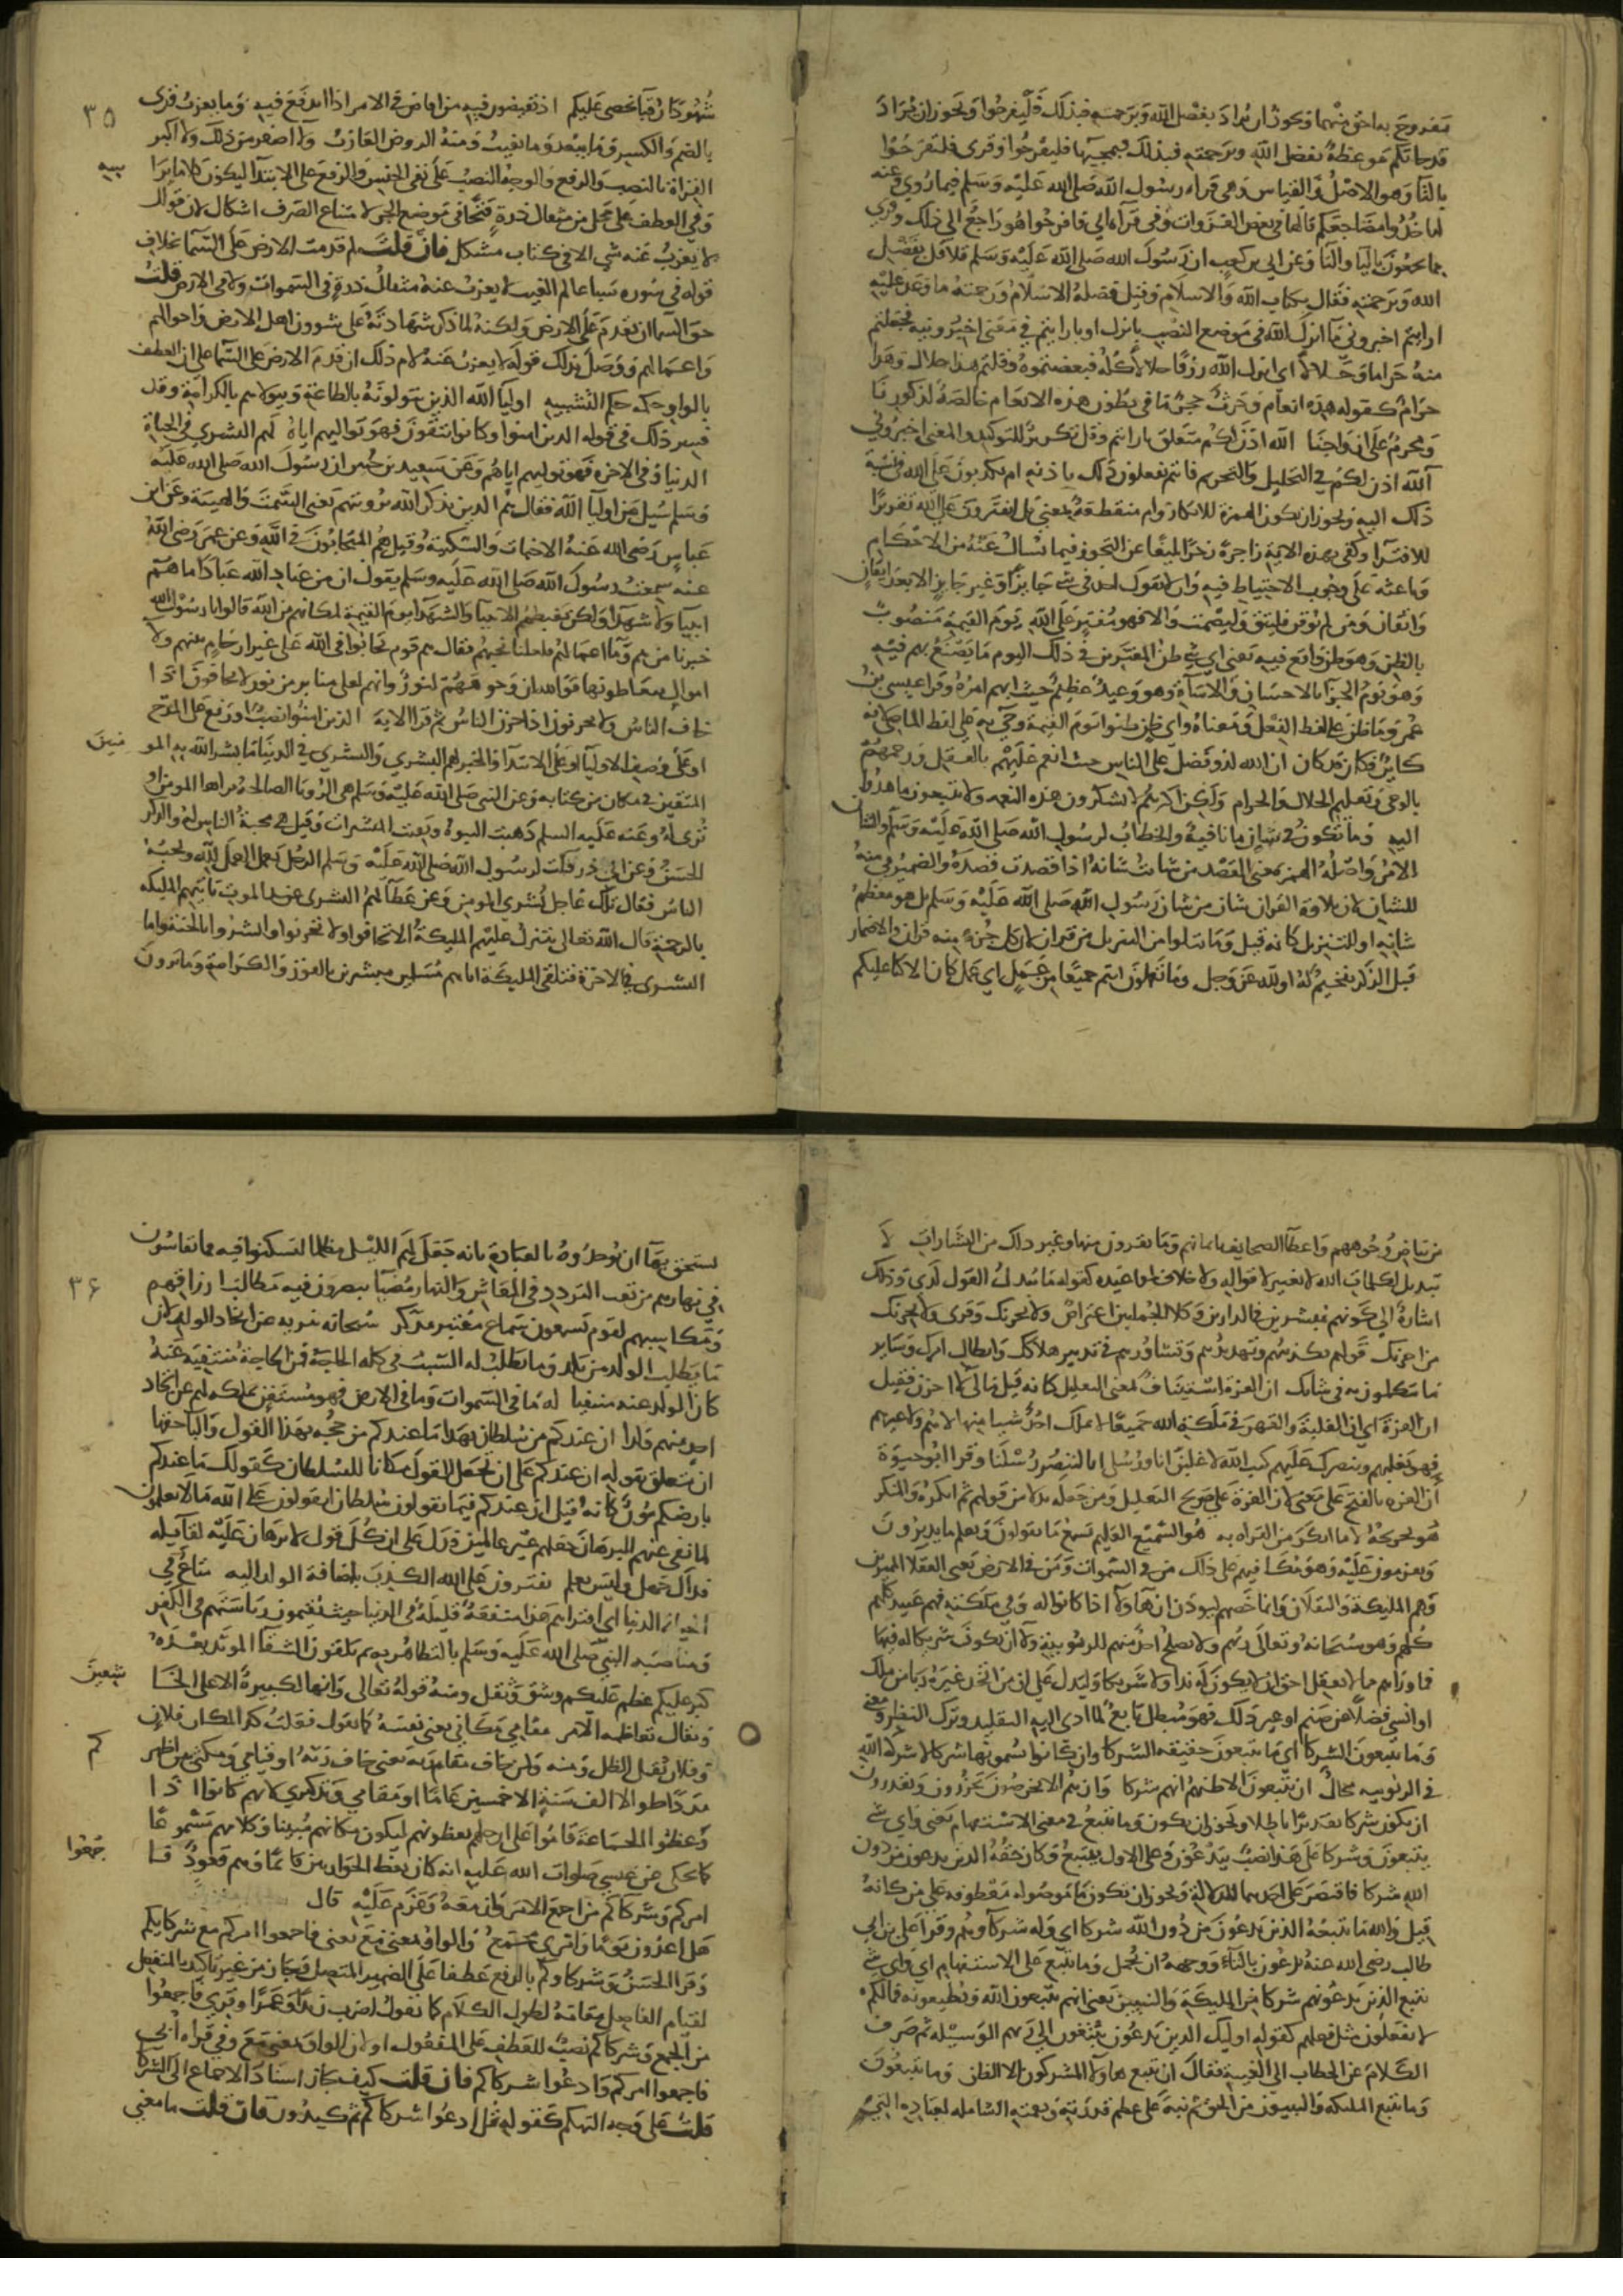 مفروح به احق منهما ويجوز ان يراد بفضل الله وبرحمته فبذلك فليفرحوا ويجوز ان يراد
قد جاتكم موعظة بفضل الله وبرحمته فبذلك فبمجيها فليفرحوا وقرى فلتفرحوا
بالتا وهو الاصل والقياس وهى قراه رسول الله صلى الله عليه وسلم فيما روي وعنه
لتاخذوا مضاجعكم قالها في بعض الغزوات وفى قرآه ابي فافرحوا هو راجع الى ذلك وقري
مما يجمعون باليا والتا وعن ابي بن كعب ان رسول الله صلى الله عليه وسلم تلا قل بفضل
الله وبرحمته فقال بكتاب الله والاسلام وقيل فضله الاسلام ورحمته ما وعد عليه
ارايتم اخبروني ما انزل الله في موضع النصب بانزل او بارايتم في معنى اخبرونيه فجعلتم
منه حراما وحلالا اى انزل الله رزقا حلالا كله فبعضتموه وقلتم هذا حلال وهذا
حرام كقوله هذه انعام وحرث حجر ما في بطون هذه الانعام خالصة لذكورنا
ومحرم على ازواجنا الله اذن لكم متعلق بارايتم وقل تكرير للتوكيد والمعنى اخبروني
آلله اذن لكم في التحليل والتحريم فانتم تفعلون ذلك باذنه ام تكذبون على الله في نسبة
ذلك اليه ويجوز ان يكون الهمزة للانكار وام منقطعة بمعني بل اتفترون على الله تقريرا
للافترآ وكفى بهذه الاية زاجرة زجرا بليغا عن التجوز فيما يسال عنه من الاحكام
وباعثه على وجوب الاحتياط فيه وان لا يقول احد في شي جايز او غير جايز الا بعد ايقان
واتقان ومن لم يوقن فليتق الله وليصمت والا فهو مفتر على الله يوم القيمة منصوب
بالظن وهو ظن واقع فيه يعنى اي شي ظن المفترين في ذلك اليوم ما يصنع بهم فيه
وهو يوم الجزا بالاحسان والاسآة وهو وعيد عظيم حيث ابهم امره وقرا عيسى بن
عمر وما ظن على لفظ الفعل ومعناه واي ظن ظنوا يوم القيمة وجي به على لفظ الماضى لانه
كاين فكان قد كان ان الله لذو فضل على الناس حيث انعم عليهم بالعقل ورحمهم
بالوحى وتعليم الحلال والحرام ولكن اكثرهم لا يشكرون هذه النعمه ولا يتبعون ما هدوا
اليه وما تكون في شان ما نافية والخطاب لرسول الله صلى الله عليه وسلم والشان
الامر واصله الهمز بمعنى القصد من شانت شانه اذا قصدت قصده والضمير في منه
للشان لان تلاوة القران شان من شان رسول الله صلى الله عليه وسلم بل هو معظم
شانه او للتنزيل كانه قيل وما تتلوا من التنزيل من قران لان كل جزء منه قران والاضمار
قبل الذكر تفخيم له او لله عز وجل وما تعملون انتم جميعا من عمل اي عمل كان الا كنا عليكم
٣٥
شهودا رقبا نحصى عليكم اذ تفيضون فيه من افاض في الامر اذا اندفع فيه وما يعزب قرى
بالضم والكسر وما يبعد وما يغيب ومنه الروض العازب ولا اصغر من ذلك ولا اكبر
القراة بالنصب والرفع والوجه النصب على نفى الجنس والرفع على الابتدآ ليكون كلاما براسه
وفي العطف على محل من مثقال ذرة او فتحا في موضع الجر لامتناع الصرف اشكال لان قولك
لا يعزب عنه شي الا في كتاب مشكل فان قلت لم قدمت الارض على السما بخلاف
قوله في سوره سبا عالم الغيب لا يعزب عنه مثقال ذرة في السموات ولا في الارض قلت
حق السما ان تقدم على الارض ولكنه لما ذكر شهادته على شوون اهل الارض واحوالهم
واعمالهم ووصل بذلك قوله لا يعزب عنه لام ذلك ان قدم الارض على السما على ان العطف
بالواو حكمه حكم التثنيه اوليآ الله الذين يتولونه بالطاعة ويتولاهم بالكرامة وقد
فسر ذلك في قوله الذين امنوا وكانوا يتقون فهو توليهم اياه لهم البشري في الحياة
الدنيا وفى الاخره فهو توليه اياهم وعن سعيد بن جبير ان رسول الله صلى الله عليه
وسلم سيل عن اوليآ الله فقال هم الذين يذكر الله برويتهم يعنى السمت والهيئة وعن ابن
عباس رضى الله عنه الاخبات والسكينة وقيل هم المتحابون في الله وعن عمر رضي الله
عنه سمعت رسول الله صلى الله عليه وسلم يقول ان من عباد الله عبادا ما هم
انبيا ولا شهدآ ولكن يغبطهم الانبيا والشهدآ يوم القيمة لمكانهم من الله قالوا يا رسول الله
خبرنا من هم وما اعمالهم فلعلنا نحبهم فقال هم قوم تحابوا في الله على غير ارحام بينهم ولا
اموال يتعاطونها فوالله ان وجوههم لنور وانهم لعلى منابر من نور لا يخافون اذا
خاف الناس ولا يحزنون اذا حزن الناس ثم قرا الاية الذين امنوا نصب او رفع على المدح
او على وصف الاوليآ او على الابتدآ والخبر لهم البشري والبشري في الدنيا ما بشر الله به المومنين
المتقين في مكان من كتابه وعن النبى صلى الله عليه وسلم هى الرويا الصالحة يراها المومن او
تري له وعنه عليه السلم ذهبت النبوة وبقيت المبشرات وقيل هى محبة الناس له والذكر
الحسن وعن ابي ذر قلت لرسول الله صلى الله عليه وسلم الرجل يعمل العمل لله ويحبه
الناس فقال تلك عاجل بشري المومن وعن عطآ لهم البشري عند الموت تاتيهم المليكه
بالرحمة قال الله تعالى تتنزل عليهم المليكة الا تخافوا ولا تحزنوا وابشروا بالجنة واما
البشري في الاخرة فتلقى المليكة اياهم مسلمين مبشرين بالفوز والكرامة وما يرون
من بياض وجوههم واعطآ الصحايف بايمانهم وما يقرون منها وغير ذلك من البشارات لا
تبديل لكلمات الله لا تغيير لاقواله ولا خلاف لمواعيده كقوله ما يبدل القول لدي وذلك
اشارة الى كونهم مبشرين في الدارين وكلا الجملتين اعتراض ولا يحزنك وقرى ولا يحزنك
من احزنك قولهم تكذيبهم وتهديدهم وتشاورهم في تدبير هلاكك وابطال امرك وساير
ما يتكلمون به في شانك ان العزة استيناف بمعنى التعليل كانه قيل مالى لا احزن فقيل
ان العزة اي ان الغلبة والقهر في ملكة الله جميعا لا يملك احد شيا منها لا هم ولا غيرهم
فهو يغلبهم وينصرك عليهم كتب الله لاغلبن انا ورسلى انا لننصر رسلنا وقرا ابو حيوة
ان العزه بالفتح على معنى لان العزة على صريح التعليل ومن جعله بدلا من قولهم ثم انكره والمنكر
هو تخريجه لا ما انكر من القراه به هو السميع العليم يسمع ما يقولون ويعلم ما يدبرون
ويعزمون عليه وهو مكافيهم على ذلك من في السموات ومن في الارض يعنى العقلا المميزين
وهم المليكة والثقلان وانما خصهم ليوذن ان هاولآ اذا كانوا له وفي ملكته فهم عبيد كلهم
كلهم وهو سبحانه وتعالى ربهم ولا يصلح احد منهم للربوبية ولا ان يكون شريكا له فيها
فما وراهم مما لا يعقل احق ان لا يكون له ندا ولا شريكا وليدل على ان من اتخذ غيره ربا من ملك
او انسي فضلا عن صنم او غير ذلك فهو مبطل تابع لما ادى اليه التقليد وترك النظر ومعنى
وما يتبعون الشركا اي ما يتبعون حقيقه الشركا وان كانوا يسمونها شركا لان شركة الله
في الربوبيه محال ان يتبعون الا ظنهم انهم شركا وان هم الا يخرصون يحزرون ويقدرون
ان يكون شركا تقديرا باطلا ويجوز ان يكون وما يتبع في معنى الاستفهام يعنى واي شي
يتبعون وشركا على هذا نصب بيدعون وعلى الاول بيتبع وكان حقه الذين يدعون من دون
الله شركا فاقتصر على احدهما للدلالة ويجوز ان يكون ما موصولة معطوفه على من كانه
قيل ولله ما يتبعه الذين يدعون من دون الله شركا اي وله شركآوهم وقرا على بن ابي
طالب رضى الله عنه تدعون بالتاء ووجهه ان تحمل وما يتبع على الاستفهام اي واي شي
يتبع الذين تدعونهم شركا من المليكة والنبيين يعنى انهم يتبعون الله ويطيعونه فما لكم
لا تفعلون مثل فعلهم كقوله اوليك الذين يدعون يبتغون الى ربهم الوسيله ثم صرف
الكلام عن الخطاب الى الغيبة فقال ان يتبع هاولآ المشركون الا الظن وما يتبعون
وما يتبع المليكه والنبيون من الحق ثم نبه على عظم قدرته ونعمته الشامله لعباده التي
٣٦
يستحق بها ان يوحدوه بالعبادة بانه جعل لهم الليل مظلما ليسكنوا فيه مما يقاسون
في نهارهم من تعب التردد في المعاش والنهار مضيا يبصرون فيه مطالب ارزاقهم
ومكاسبهم لقوم يسمعون سماع معتبر مدكر سبحانه تنزيه عن اتخاذ الولد لان
ما يطلب الولد من يلد وما يطلب له السبب في كله الحاجة فمن الحاجة منتفية عنه
كان الولد عنه منتفيا له ما في السموات وما في الارض فهو مستغن بملكه لهم عن اتخاذ
احد منهم ولدا ان عندكم من سلطان بهذا ما عندكم من حجه بهذا القول والبآ حقها
ان تتعلق بقوله ان عندكم على ان تجعل القول مكانا للسلطان كقولك ما عندكم
بارضكم موز كانه قيل ان عندكم فيما تقولون سلطان اتقولون على الله ما لا تعلمون
لما نفى عنهم البرهان جعلهم غير عالمين فدل على ان كل قول لا برهان عليه لقايله
فذاك جهل وليس بعلم يفترون على الله الكذب باضافة الولد اليه متاع في
الدنيا اى افتراهم هذا منفعة قليلة في الدنيا حيث يقيمون رياستهم في الكفر
ومناصبه النبي صلى الله عليه وسلم بالتظاهر به ثم يلقون الشقا الموبد بعده
كبر عليكم عظم عليكم وشق وثقل ومنه قوله تعالى وانها لكبيرة الا على الخاشعين
ويقال تعاظمه الامر مقامي مكاني يعني نفسه كما يقول فعلت كذا لمكان فلان
وفلان ثقيل الظل ومنه ولمن خاف مقام ربه يعنى خاف ربه او قيامى ومكثى بين اظهركم
مددا طوالا الف سنة الا خمسين عاما او مقامي وتذكيري لانهم كانوا اذا
وعظوا الجماعة قاموا على ارجلهم يعظونهم ليكون مكانهم مبينا وكلامهم مسموعا
كما يحكى عن عيسي صلوات الله عليه انه كان يعظ الحواريين قايما وهم قعود فاجمعوا
امركم وشركاكم من اجمع الامر وازمعه وعزم عليه قال
هل اغدون يوما وامري مجمع والواو بمعنى مع يعنى فاجمعوا امركم مع شركايكم
وقرا الحسن وشركاوكم بالرفع عطفا على الضمير المتصل وجاز من غير تاكيد بالمنفصل
لقيام الفاصل مقامه لطول الكلام كما تقول اضرب زيدا وعمرا وقري فاجمعوا
من الجمع وشركاكم نصب للعطف على المفعول او لان الواو بمعنى مع وفي قراه ابي
فاجمعوا امركم وادعوا شركاكم فان قلت كيف جاز اسناد الاجماع الى الشركا
قلت على وجه التهكم كقوله قل ادعوا شركاكم ثم كيدون فان قلت ما معنى